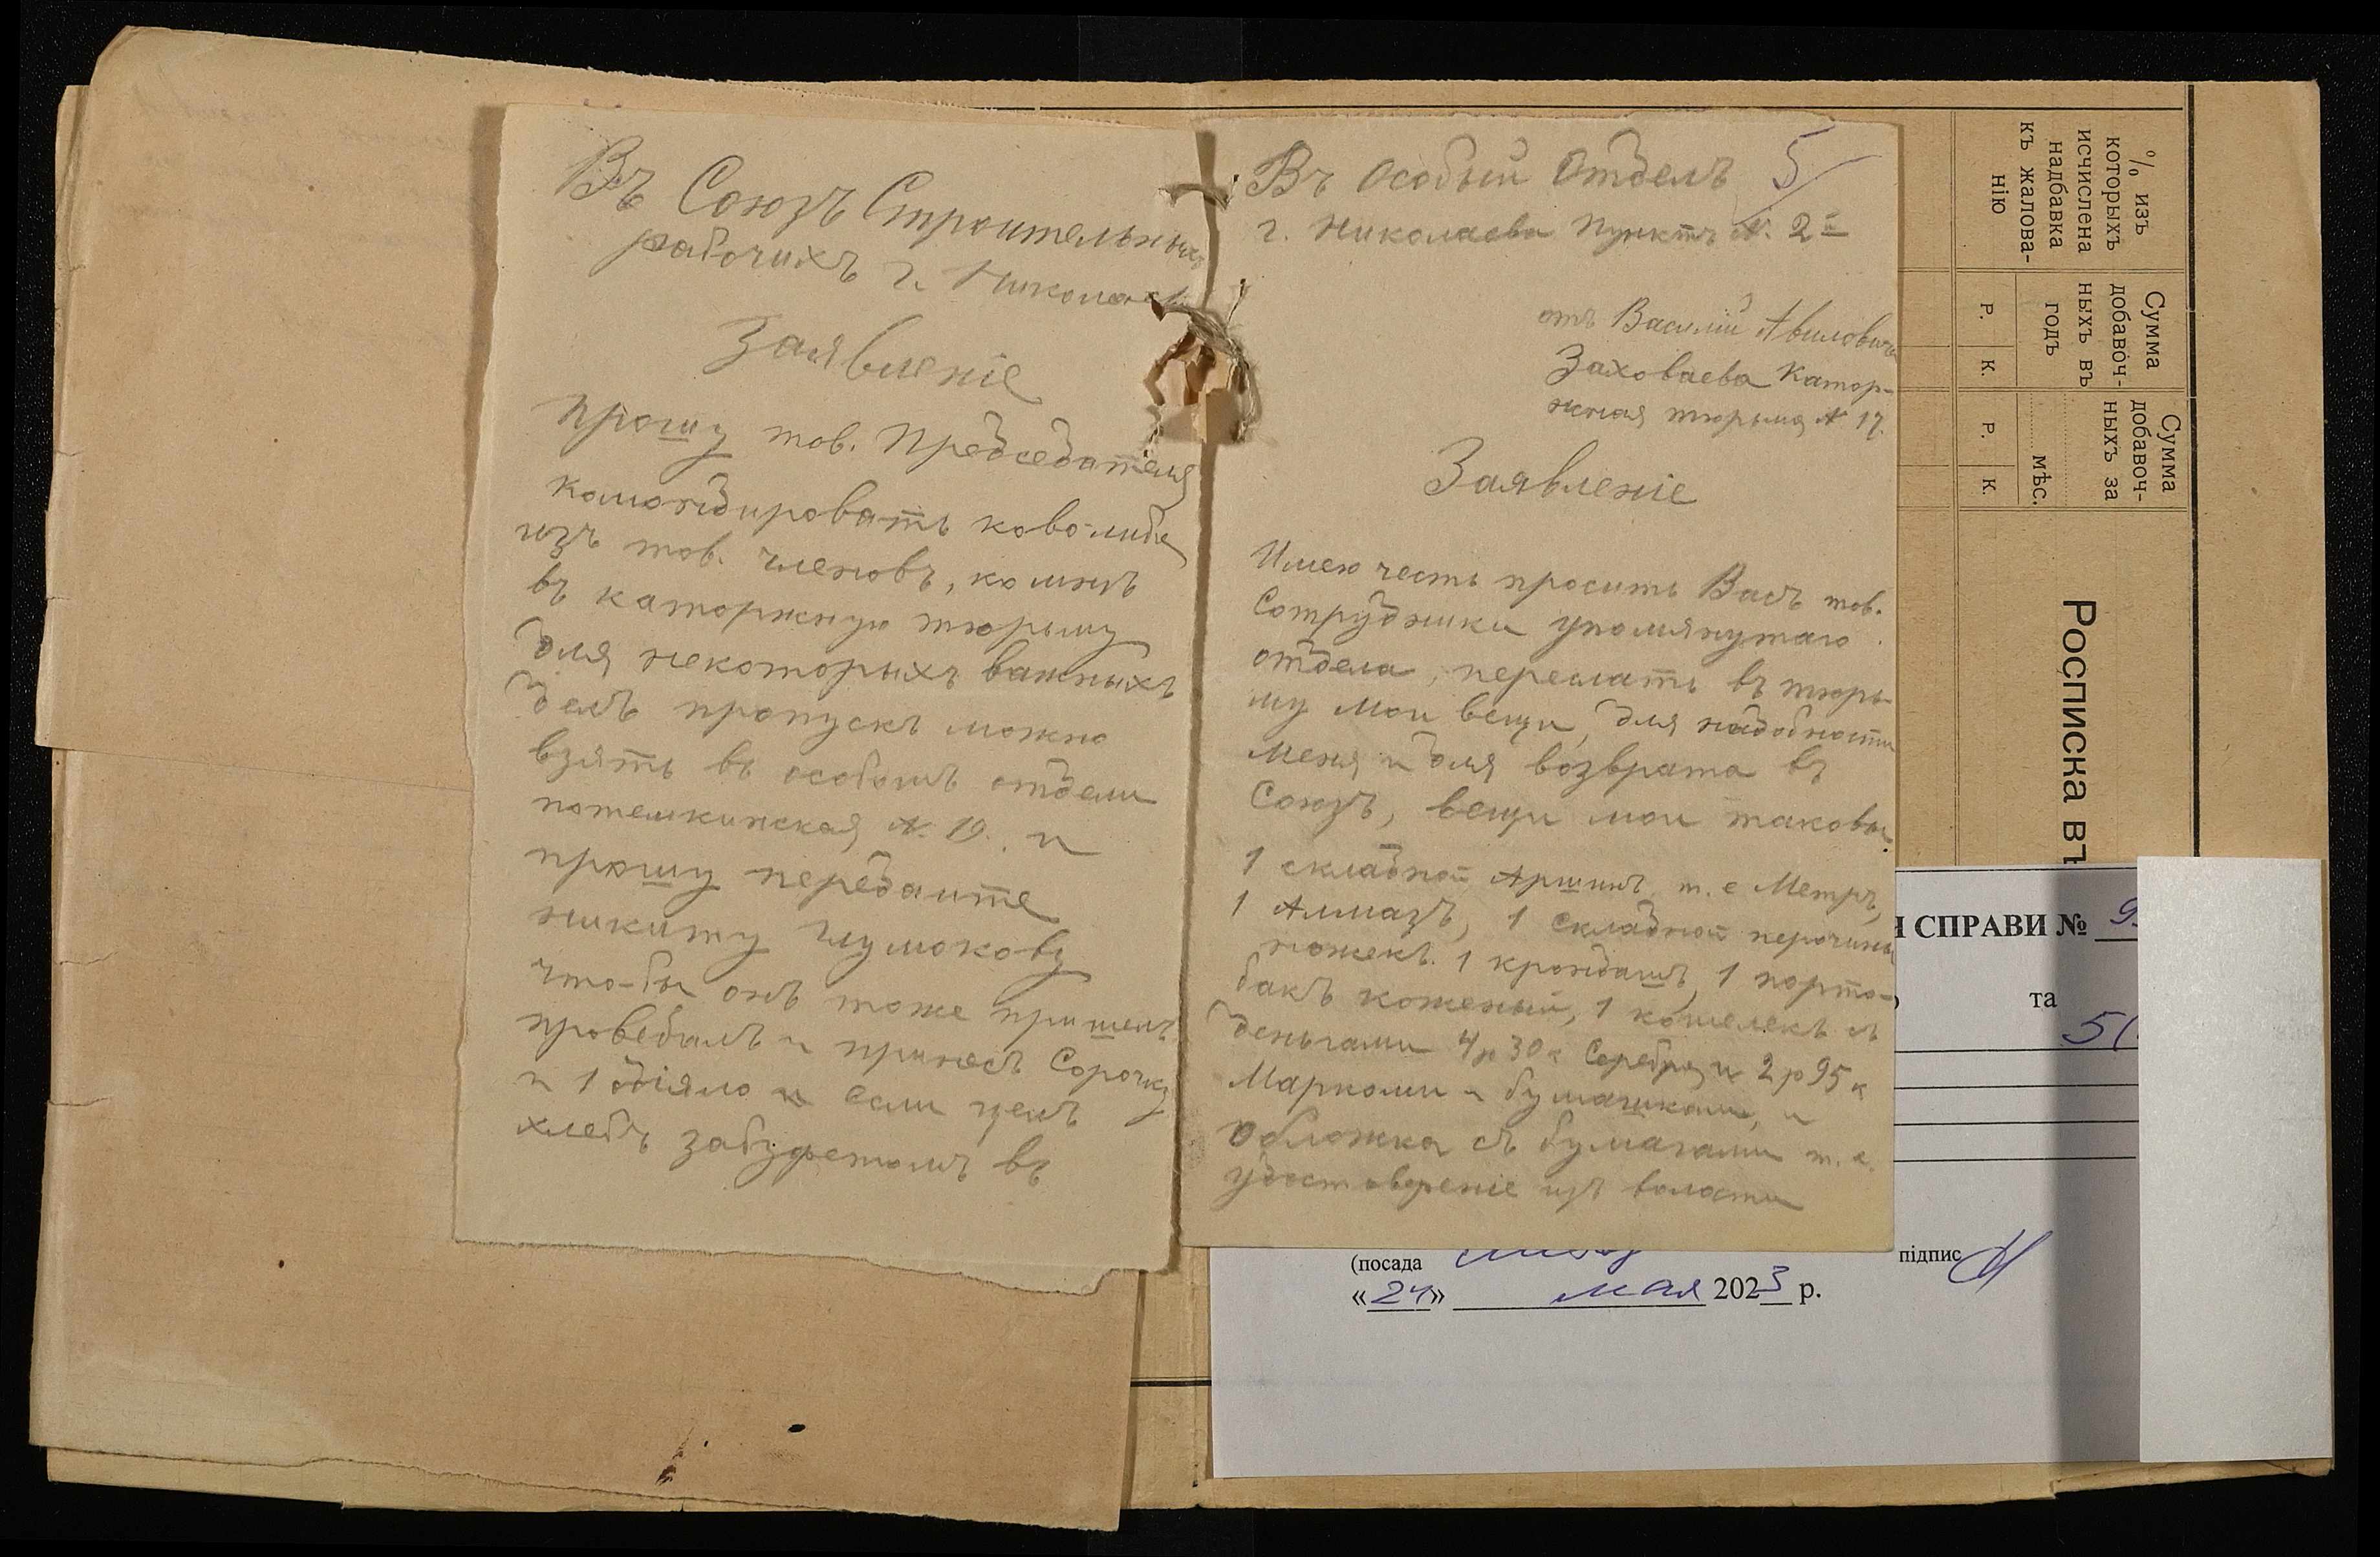 Въ Союзъ Строительныхъ
рабочихъ г. Николаева
Заявленіе
прошу тов. Председателя
комондировать ково-либо
изъ тов. членовъ, ко мнъ
въ каторжную тюрьму
для некоторыхъ важныхъ
делъ пропускъ можно
взять въ особомъ отдели
потемкинская №. 19. и
прошу передайте
никиту шумокову
что-бы онъ тоже пришелъ
проведалъ и принесъ Сорочку
и 1 одіяло и если
хлебъ въ
Въ Особый Отделъ 5
г. Николаева Пунктъ №. 2й
отъ Василій Авиловича
Заховаева Катор-
жная тюрьма № 17.
Заявленіе
Имею честь просить Васъ тов.
Сотрудники упомянутаго
отдела, переслать въ тюрь-
му мои вещи, для надобности
меня и для возврата въ
Союзъ, вещи мои таковы
1 складной Аршинъ, т. е Метръ,
1 Алмазъ, 1 складной перочины
ножекъ. 1 крондашъ, 1 порто-
бакъ коженый, 1 кошелекъ съ
деньгами 4 р 30 к Серебра и 2 р 95 к
Марками и бумашками, и
Обложка съ бумагами т. е.
удостовереніе изъ воласти
% изъ
которыхъ
исчислена
надбавка
къ жалова-
нію
Сумма
добавоч-
ныхъ въ
годъ
Р. К.
Сумма
добавоч-
ныхъ за
мѣс.
Р. К.
Росписка въ
СПРАВИ № 9
та
5
(посада
підпис
«24» мая 2023 р.